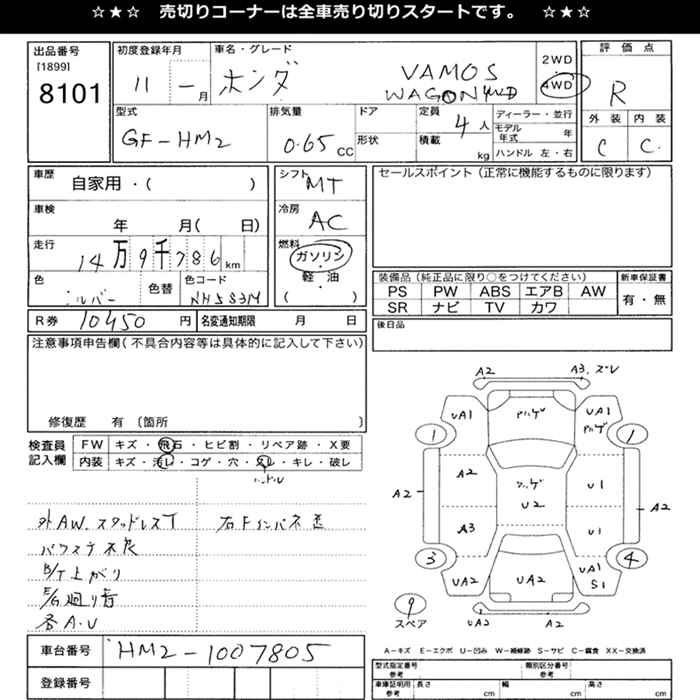 ☆★☆ 売切りコーナーは全車売り切りスタートです。 ☆★☆
出品番号
[1899]
8101
初度登録年月
11 - 月
車名・グレード
ホンダ VAMOS
WAGON 4WD
2WD
4WD
評価点
R
外装 内装
C C
型式
GF-HM2
排気量
0.65 CC
ドア
形状
定員
4 人
積載 kg
ディーラー・並行
モデル年式 年
ハンドル 左・右
車歴
自家用・( )
車検
年 月( 日)
走行
14万9千786 km
色
シルバー
色替
色コード
NH583M
シフト
MT
冷房
AC
燃料
ガソリン
・
軽油
( )
セールスポイント(正常に機能するものに限ります)
装備品(純正品に限り○をつけてください)
PS PW ABS エアB AW
SR ナビ TV カワ
新車保証書
有・無
R券 10450 円
名変通知期限 月 日
後日品
注意事項申告欄(不具合内容等は具体的に記入して下さい)
修復歴 有 〔箇所 〕
検査員
記入欄
FW キズ・飛石・ヒビ割・リペア跡・X要
内装 キズ・汚レ・コゲ・穴・スレ・キレ・破レ
ハンドル
外AW.スタッドレスT
パワステ不良
B/T上がり
E/G廻り音
各A・U
右Fインパネ
A2 A3.ズレ
UA1 ハゲ UA1
ハゲ
1 1
A2 ハゲ U1
A2 U2 A2
A3 U1
3 4
UA2 UA2 UA1
S1
9
スペア
UA2 A2
A-キズ E-エクボ U-凹み W-補修跡 S-サビ C-腐食 XX-交換済
車台番号 HM2-1007805
登録番号
型式指定番号
参考
類別区分番号
参考
車庫証明用
参考
長さ cm
幅 cm
高さ cm